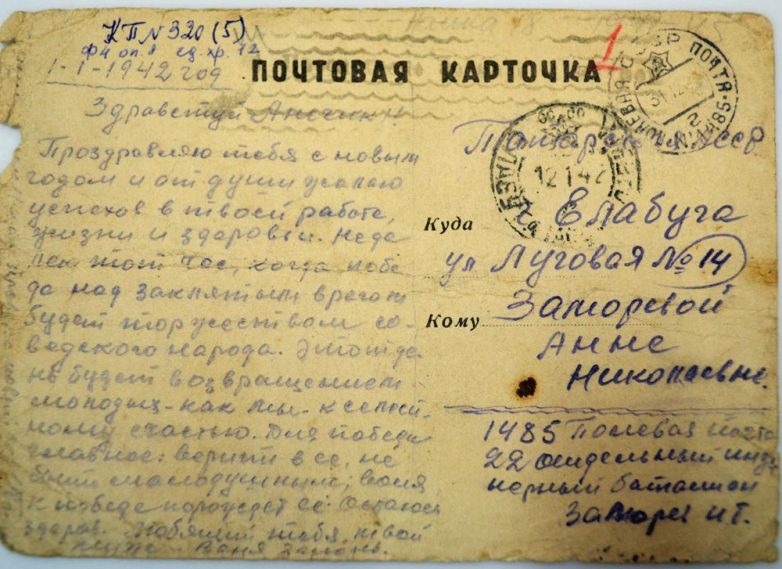 КП № 320 (5)
ф оп. 1 ед. хр. 12
1-1-1942 год
1
ПОЧТОВАЯ КАРТОЧКА
Здравствуй
Проздравляю тебя с новым
годом и от души желаю
успехов в твоей работе,
жизни и здоровьи. Неда
лек тот час, когда побе
да над заклятым врагом
будет торжеством со-
ветского народа. Этот де
нь будет возвращением
молодых-как мы-к семей-
ному счастью. Для победы
главное: верить в её, не
быть малодушным; воля
к победе породжает её. Остаюсь
здоров. Любящий тебя, твой
Ваня
ПОЧТА
12 1 42
Татарская АССР
Куда
г. Елабуга
ул Луговая № 14
Кому
Заморевой
Анне
Николаевне.
1485 Полевая почта
22 отдельный инже
нерный баталион
Заморев И Т.